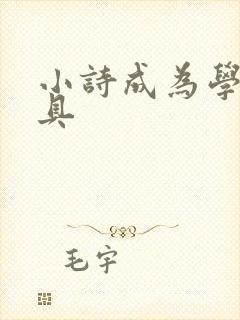 小詩成為學
具
毛宇